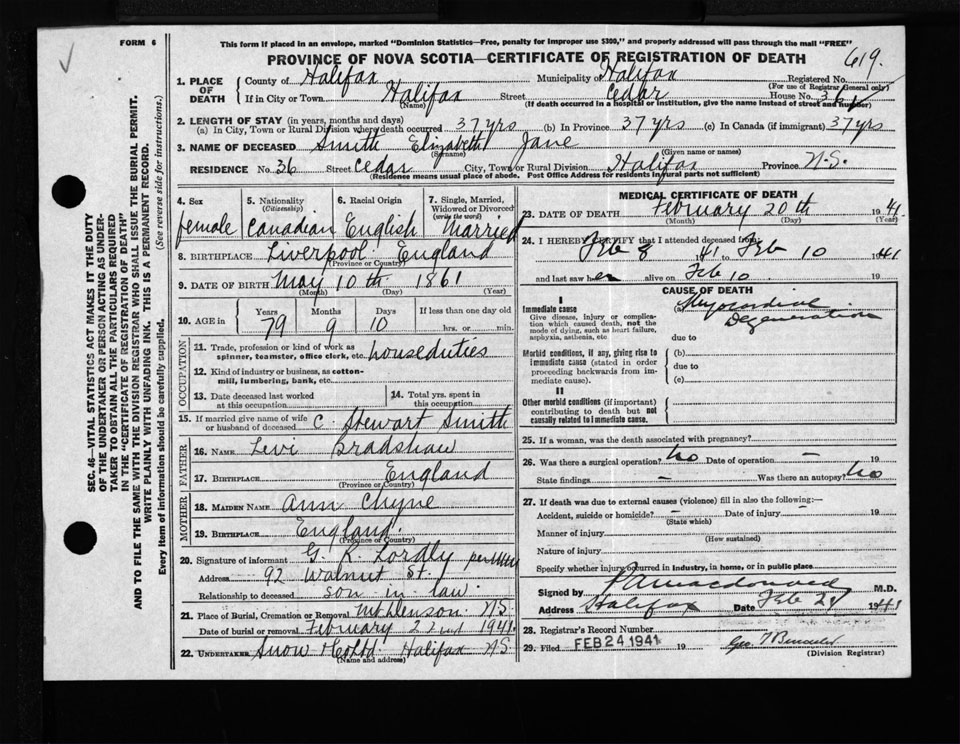 FORM 6
This form if placed in an envelope, marked "Dominion Statistics—Free, penalty for improper use $300," and properly addressed will pass through the mail "FREE"
PROVINCE OF NOVA SCOTIA—CERTIFICATE OF REGISTRATION OF DEATH
619.
1. PLACE OF DEATH
County of Halifax Municipality of Halifax Registered No.
(For use of Registrar General only)
If in City or Town Halifax Street Cedar House No. 36
(Name) (If death occurred in a hospital or institution, give the name instead of street and number)
2. LENGTH OF STAY (in years, months and days)
(a) In City, Town or Rural Division where death occurred 37 yrs (b) In Province 37 yrs (c) In Canada (if immigrant) 37 yrs
3. NAME OF DECEASED Smith Elizabeth Jane
(Surname) (Given name or names)
RESIDENCE No. 36 Street Cedar City, Town or Rural Division Halifax Province N.S.
(Residence means usual place of abode. Post Office Address for residents in rural parts not sufficient)
4. Sex
female
5. Nationality
(Citizenship)
Canadian
6. Racial Origin
English
7. Single, Married, Widowed or Divorced
(write the word)
Married
8. BIRTHPLACE Liverpool England
(Province or Country)
9. DATE OF BIRTH May 10th 1861
(Month) (Day) (Year)
10. AGE in
Years Months Days If less than one day old
79 9 10 hrs. or min.
OCCUPATION
11. Trade, profession or kind of work as
spinner, teamster, office clerk, etc. houseduties
12. Kind of industry or business, as cotton-
mill, lumbering, bank, etc.
13. Date deceased last worked
at this occupation
14. Total yrs. spent in
this occupation
15. If married give name of wife
or husband of deceased C. Stewart Smith
FATHER
16. NAME Levi Bradshaw
17. BIRTHPLACE England
(Province or Country)
MOTHER
18. MAIDEN NAME Ann Chyne
19. BIRTHPLACE England
(Province or Country)
20. Signature of informant G. R. Lordly per
Address 92 Walnut St.
Relationship to deceased son in law
21. Place of Burial, Cremation or Removal N.S.
Date of burial or removal February 22nd 1941
22. UNDERTAKER Snow & Co Ltd. Halifax N.S.
(Name and address)
MEDICAL CERTIFICATE OF DEATH
23. DATE OF DEATH February 20th 1941
(Month) (Day) (Year)
24. I HEREBY CERTIFY that I attended deceased from:
Feb 8 41 to Feb 10 1941
and last saw her alive on Feb 10 19
CAUSE OF DEATH
I
Immediate cause
Give disease, injury or complica-
tion which caused death, not the
mode of dying, such as heart failure,
asphyxia, asthenia, etc
(a) Myocardial
Degeneration
due to
Morbid conditions, if any, giving rise to
immediate cause (stated in order
proceeding backwards from im-
mediate cause).
(b)
due to
(c)
II
Other morbid conditions (if important)
contributing to death but not
causally related to immediate cause.
25. If a woman, was the death associated with pregnancy?
26. Was there a surgical operation? No Date of operation — 19
State findings — Was there an autopsy? No
27. If death was due to external causes (violence) fill in also the following:—
Accident, suicide or homicide? — Date of injury — 19
(State which)
Manner of injury
(How sustained)
Nature of injury
Specify whether injury occurred in industry, in home, or in public place
Signed by M.D.
Address Halifax Date Feb 1941
28. Registrar's Record Number
29. Filed FEB 24 1941 19
(Division Registrar)
SEC. 46—VITAL STATISTICS ACT MAKES IT THE DUTY
OF THE UNDERTAKER OR PERSON ACTING AS UNDER-
TAKER TO OBTAIN ALL THE PARTICULARS REQUIRED
IN THE "CERTIFICATE OF REGISTRATION OF DEATH"
AND TO FILE THE SAME WITH THE DIVISION REGISTRAR WHO SHALL ISSUE THE BURIAL PERMIT.
WRITE PLAINLY WITH UNFADING INK. THIS IS A PERMANENT RECORD.
Every item of information should be carefully supplied. (See reverse side for instructions.)